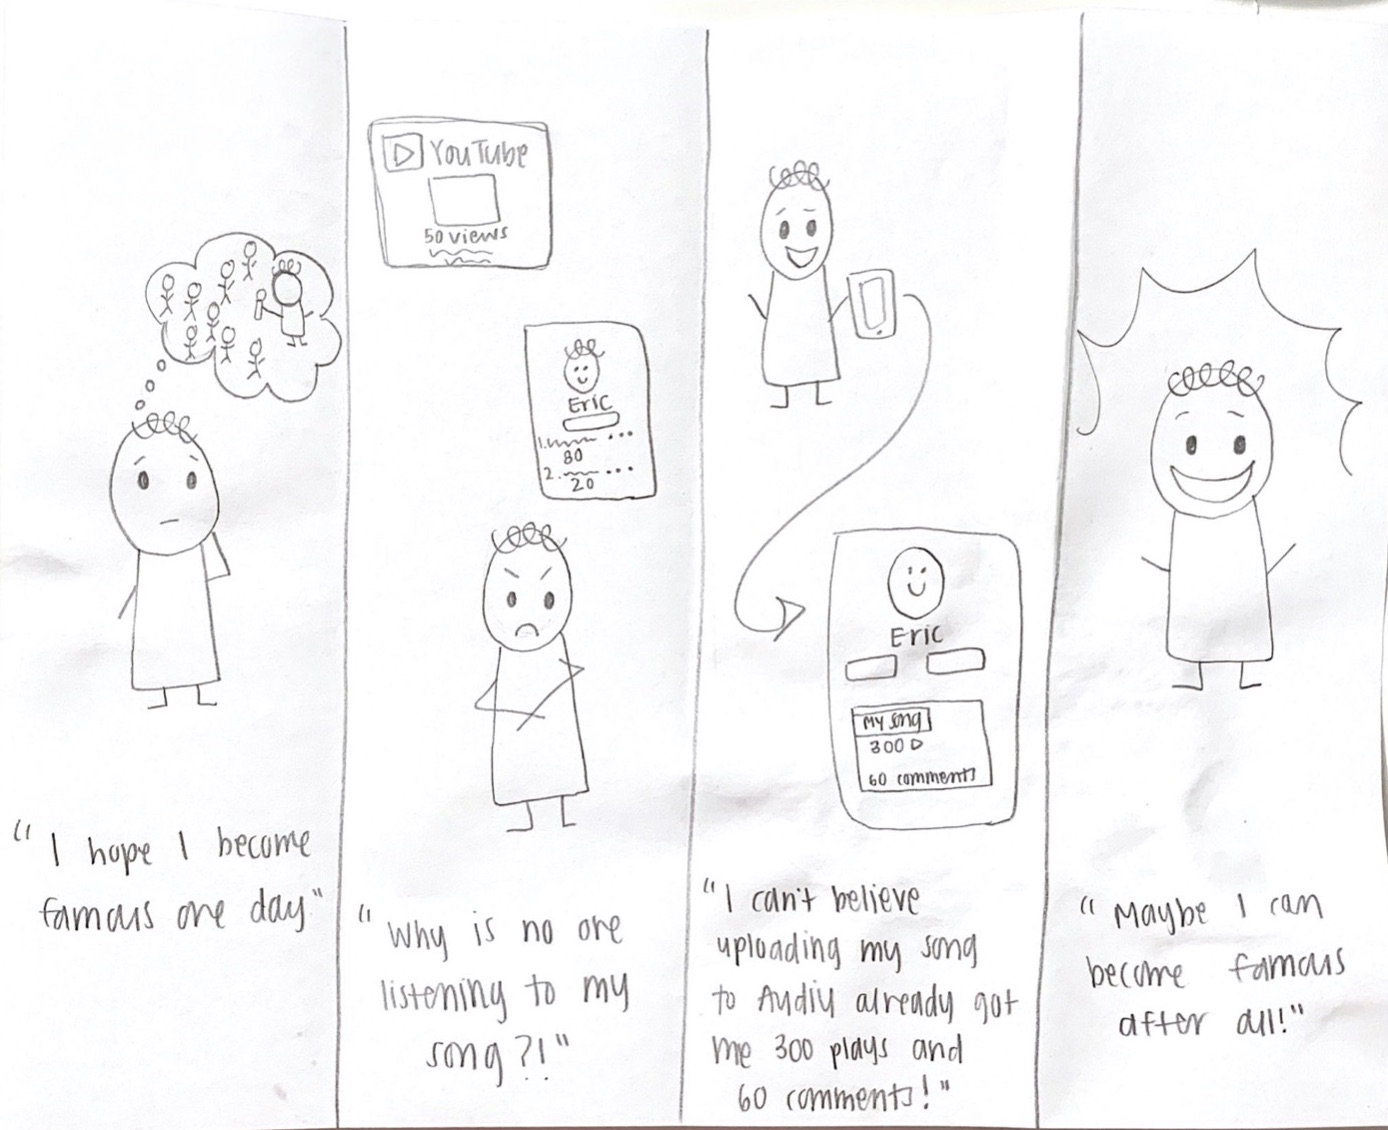 "I hope I become
famous one day"
YouTube
50 views
Eric
1. ...
80
2. ...
20
"Why is no one
listening to my
song?!"
Eric
My song
300
60 comments
"I can't believe
uploading my song
to Audiy already got
me 300 plays and
60 comments!"
"Maybe I can
become famous
after all!"